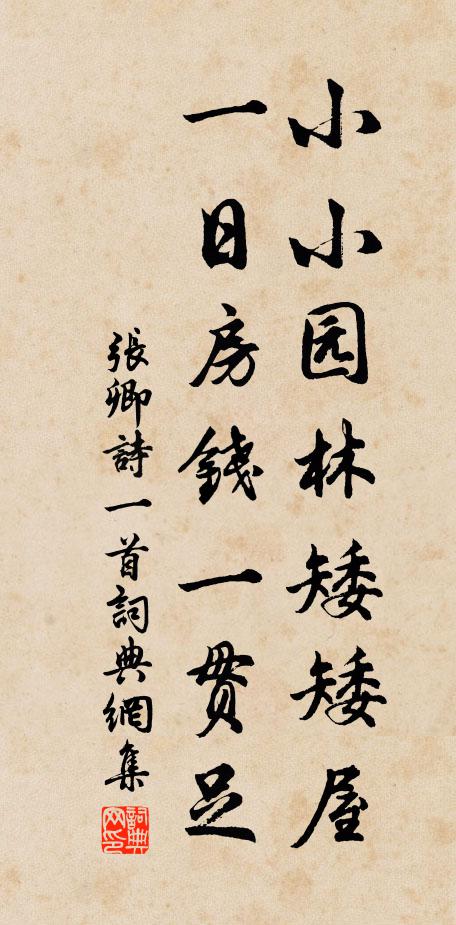 小小园林矮矮屋
一日房錢一貫足
張卿詩一首詞典網集
詞典
网印